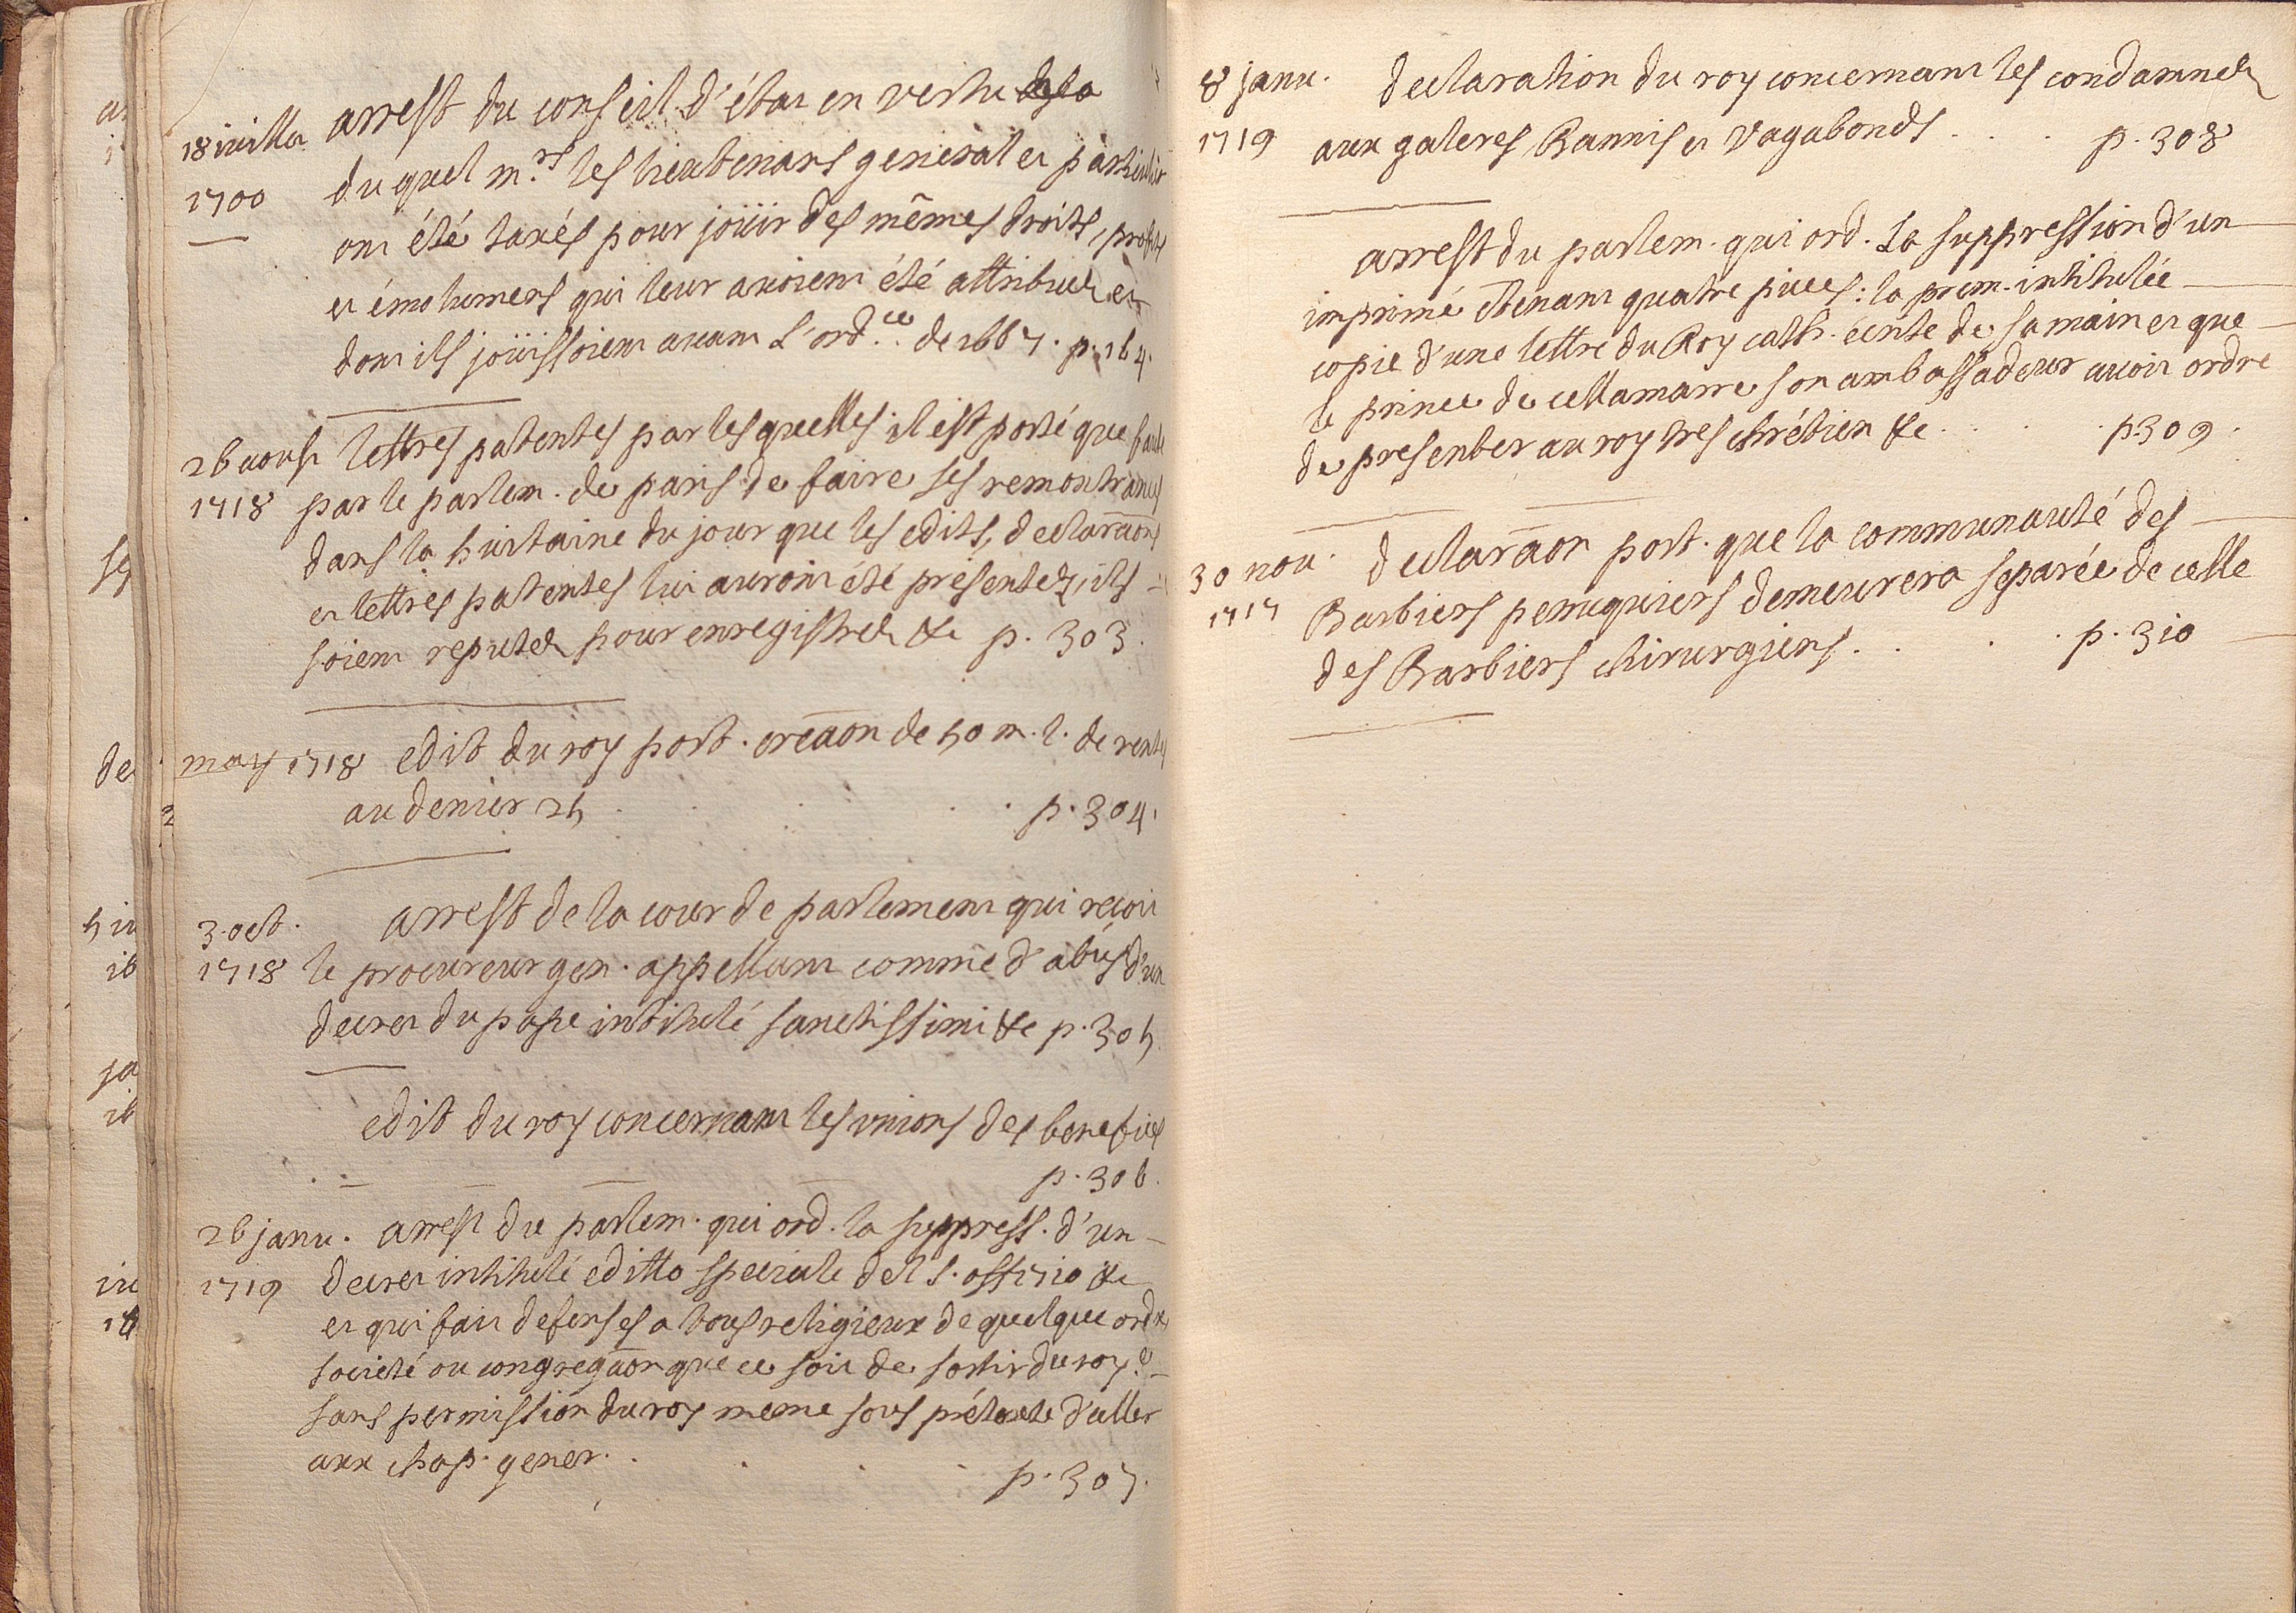 18 iuillet arrest du conseil d'état en vertu de la
1700 du quel m.rs les lieutenans general et particulier
ont été taxés pour joüir des mêmes droits, profits
et émolumens qui leur avoient été attribuez et
dont ils joüissoient avant l'ord.ce de 1667. p. 164.
26 aoust lettres patentes par lesquelles il est porté que faute
1718 par le parlem. de paris de faire ses remontrances
dans la huitaine du jour que les edits, declaraõns
et lettres patentes lui auront été présentez, ils
soient reputez pour enregistrez &c p. 303.
may 1718 edit du roy port. creãon de 50 m. l. de rentes
au denier 25 . . . . p. 304.
3. oct. arrest de la cour de parlement qui reçoit
1718 le procureur gen. appellant comme d'abus d'un
decret du pape intitulé sanctissimi &c p. 305
edit du roy concernant les unions des benefices
p. 306.
26 janv. arrest du parlem. qui ord. la suppress. d'un
1719 decret intitulé editto speciale del s. offizio &c
et qui fait defenses a tous religieux de quelque ordre
societé ou congregãon que ce soit de sortir du roy.e
sans permission du roy meme sous prétexte d'aller
aux chap. gener. . . . . p. 307.
8 janv. declaration du roy concernant les condamnez
1719 aux galeres Bannis et Vagabonds . . . p. 308
arrest du parlem. qui ord. la suppression d'un
imprimé contenant quatre pieces: la prem. intitulée
copie d'une lettre du Roy cath. écrite de sa main et que
le prince de cellamarre son ambassadeur avoit ordre
de presenter au roy tres chrétien &c . . . p. 309.
30 nov. declarãon port. que la communauté des
1717 Barbiers perruquiers demeurera separée de celle
des Barbiers chirurgiens. . . . p. 310